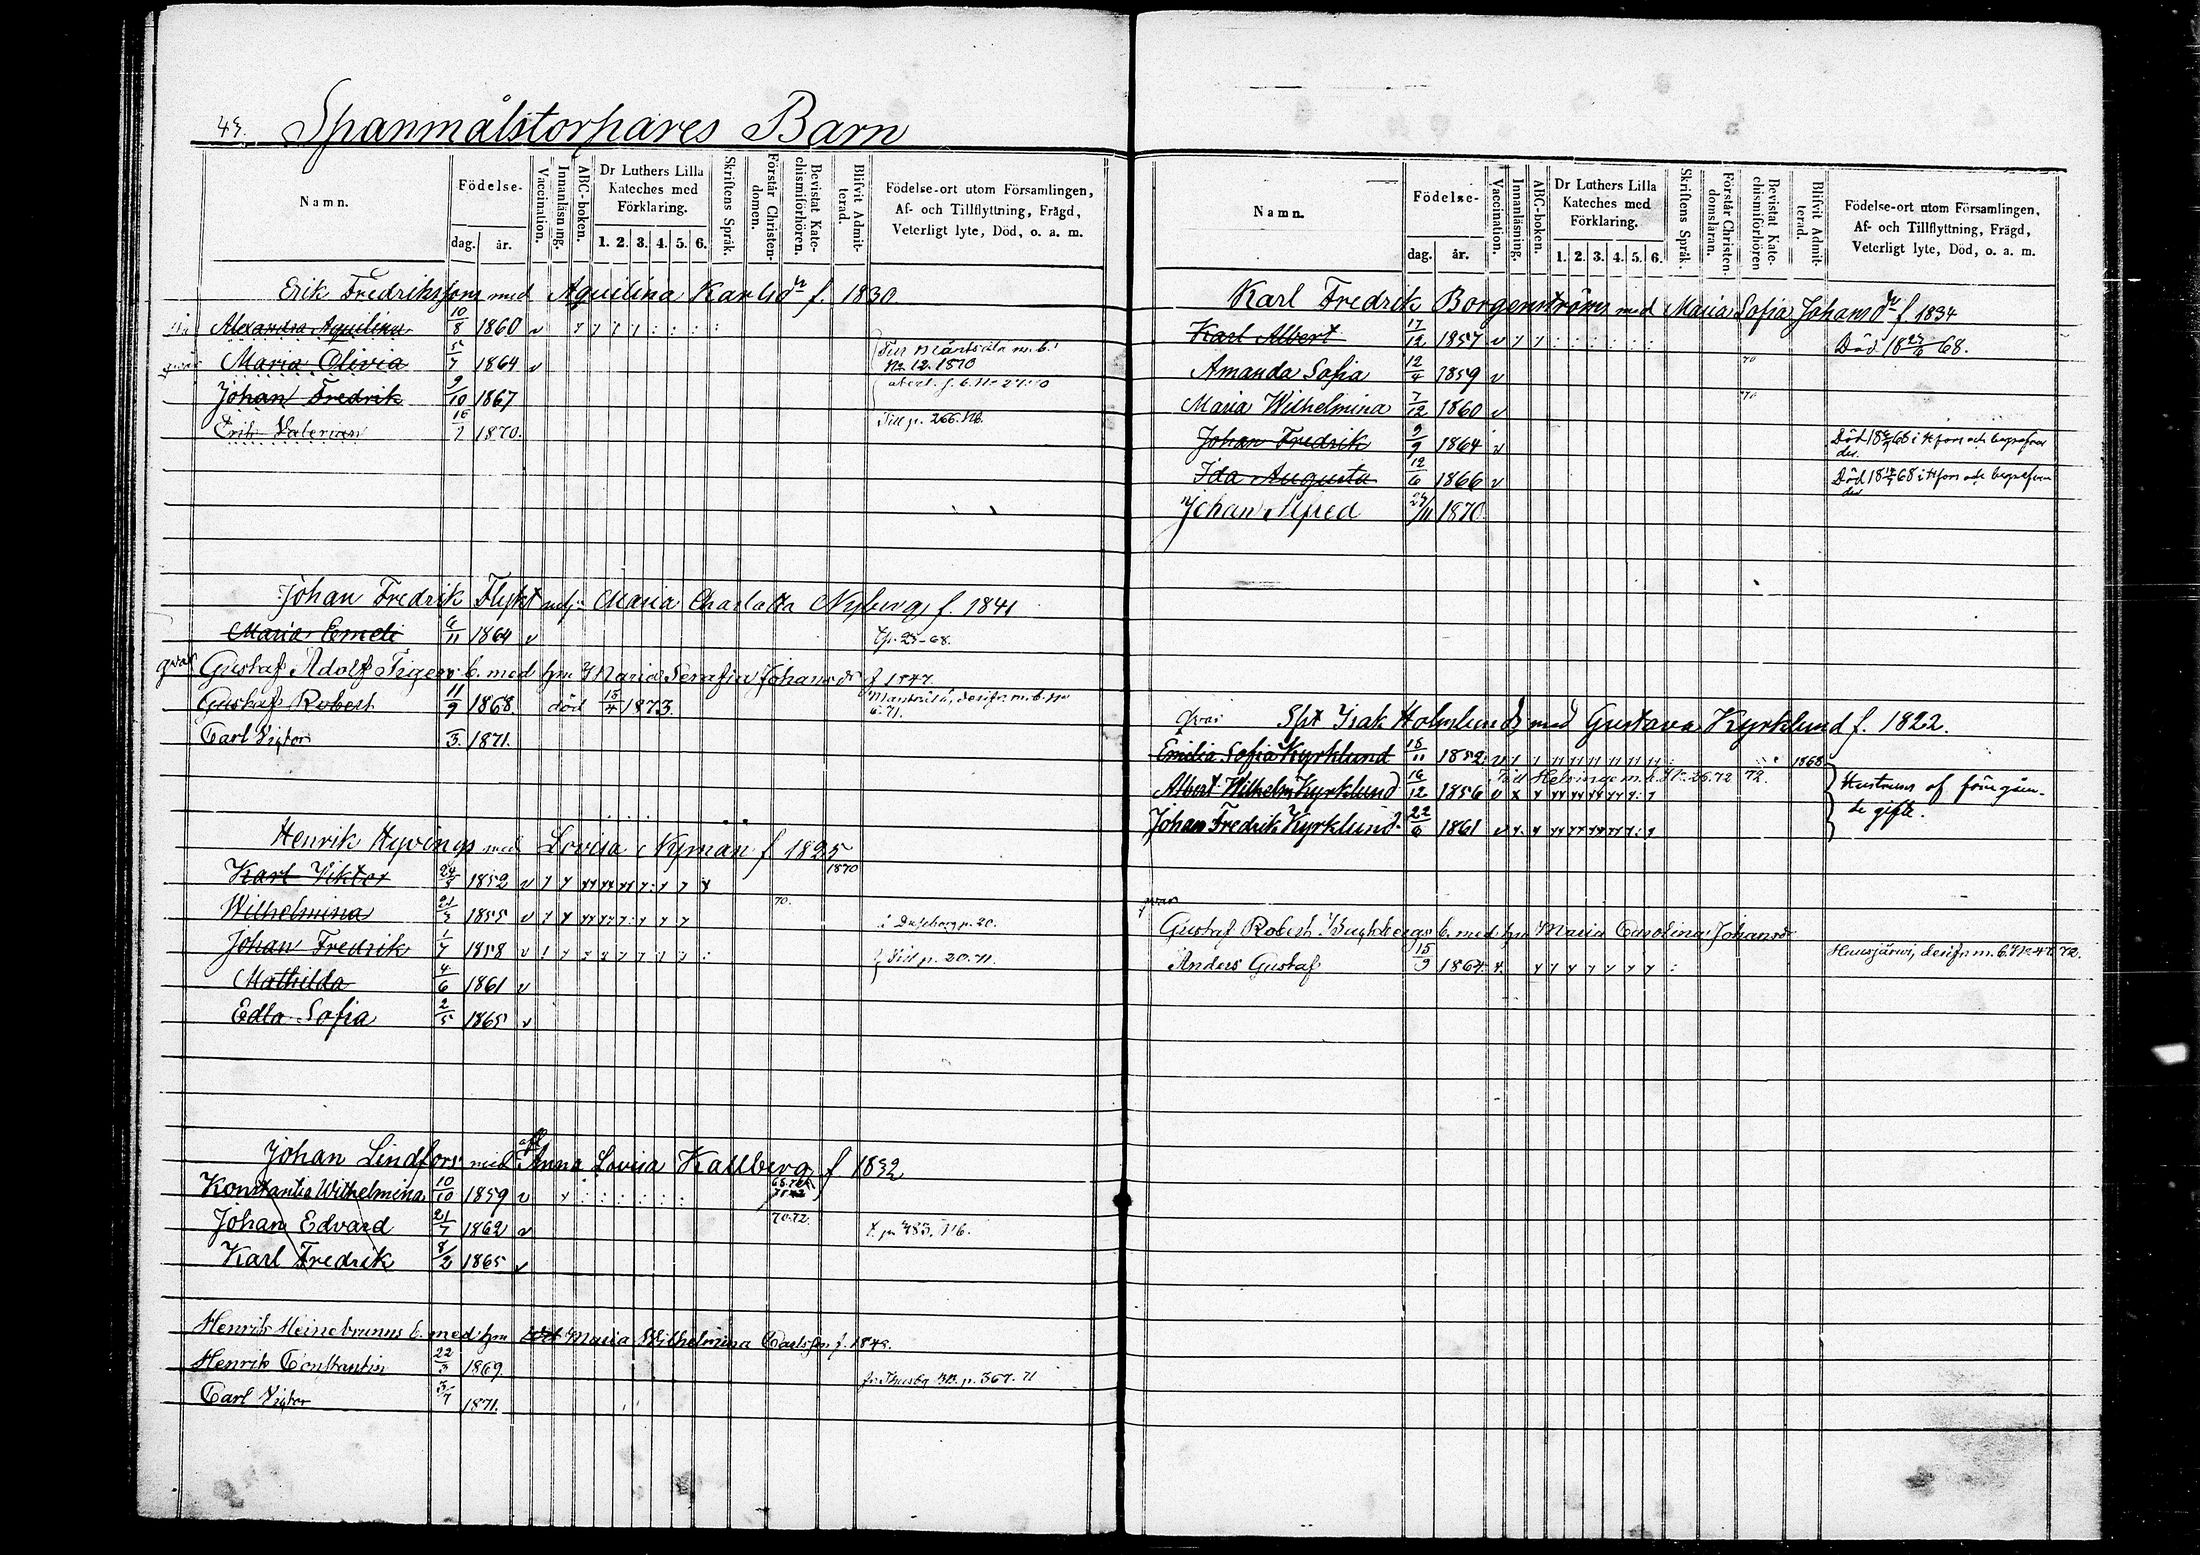 43. Spanmålstorpares Barn
Namn. Födelse- dag. år. Vaccination. Innanläsning. ABC-boken. Dr Luthers Lilla Kateches med Förklaring. 1. 2. 3. 4. 5. 6. Skriftens Språk. Förstår Christendomen. Bevistat Katechismiförhören. Blifvit Admitterad. Födelse-ort utom Församlingen, Af- och Tillflyttning, Frägd, Veterligt lyte, Död, o. a. m.
Erik Fredriksson med Aquilina Karlsdr f. 1830
Alexandra Aquilina 10/8 1860 v
Maria Olivia 5/7 1864 v
No 12. 1870
Johan Fredrik 9/10 1867
Erik Valerian 16/7 1870. Till p. 266. NB.
Johan Fredrik Flykt Maria Charlotta Nyberg f. 1841
Maria Emeli 6/11 1864 v
qvar Gustaf Adolf Tiger b. med hu Maria Serafia Johansdr f 1847
Gustaf Robert 11/9 1868. död 15/4 1873.
Carl Victor 3. 1871.
Henrik Hyvings med Lovisa Nyman f 1825
Karl Viktor 24/3 1852 v 1870
Wilhelmina 21/3 1855 v 70. p. 20.
Johan Fredrik 1/7 1858 v Till p. 20. 71.
Mathilda 4/6 1861 v
Edla Sofia 2/5 1865 v
Johan Lindfors med Anna Lovisa Kallberg f 1832
Konstantia Wilhelmina 10/10 1859 v
Johan Edvard 21/7 1862 v 70.72.
Karl Fredrik 8/2 1865 v
Henrik Heinebrunns b. med hu Maria Wilhelmina Carlsson f. 1848.
Henrik Constantin 22/3 1869.
Carl Victor 3/7 1871. fr. Thusby BB. p. 367. 71
Namn. Födelse- dag. år. Vaccination. Innanläsning. ABC-boken. Dr Luthers Lilla Kateches med Förklaring. 1. 2. 3. 4. 5. 6. Skriftens Språk. Förstår Christendomsläran. Bevistat Katechismiförhören Blifvit Admitterad. Födelse-ort utom Församlingen, Af- och Tillflyttning, Frägd, Veterligt lyte, Död, o. a. m.
Karl Fredrik Borgenström med Maria Sofia Johansdr f 1834
Karl Albert 17/12 1857 v Död 68.
Amanda Sofia 12/4 1859 v 70
Maria Wilhelmina 7/12 1860 v 70
Johan Fredrik 9/9 1864 v Död 68 i Hfors och begrafven
Ida Augusta 12/6 1866 v Död 68 i Hfors och begrafven
Johan Alfred 24/11 1870
qvar Spt Isak Holmlund med Gustava Kyrklund f. 1822.
Emilia Sofia Kyrklund 15/11 1852 v 1868
Till Helsinge m. b. No 26. 72 72.
Albert Wilhelm Kyrklund 16/12 1856 v Hustruns af föregåen-
de gifte.
Johan Fredrik Kyrklund 22/6 1861 v
qvar
Gustaf Robert b. med hu Maria Carolina Johansdr
Anders Gustaf 15/9 1864 Hausjärvi, m. b. No 47. 72.